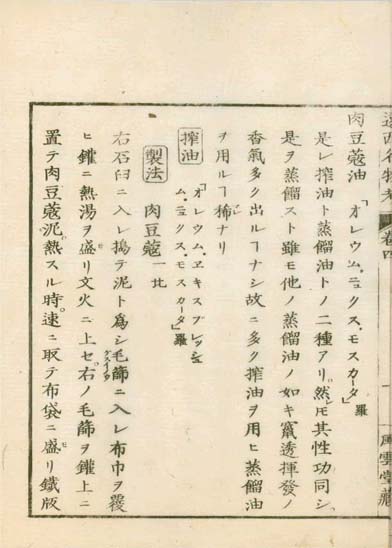 遠西名物考 卷四
風雲堂藏
肉豆蔻油「オレウム、ニュクス、モスカータ」羅
是レ搾油ト蒸餾油トノ二種アリ然レ𪜈其性功同シ
是ヲ蒸餾スト雖モ他ノ蒸餾油ノ如キ竄透揮發ノ
香氣多ク出ルヿナシ故ニ多ク搾油ヲ用ヒ蒸餾油
ヲ用ルヿ稀ナリ
搾油「オレウム、エキスプレッシュム、ニュクス、モスカータ」羅
製法 肉豆蔻一比
右石臼ニ入レ搗テ泥ト為シ毛篩ニ入レ布巾ヲ覆
ヒ鑵ニ熱湯ヲ盛リ文火ニ上セ右ノ毛篩ヲ鑵上ニ
置テ肉豆蔻泥熱スル時速ニ取テ布袋ニ盛リ鐵版